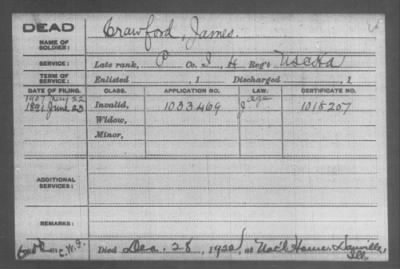 DEAD
NAME OF SOLDIER:
Crawford, James.
SERVICE:
Late rank, P Co. I, H Reg't
TERM OF SERVICE:
Enlisted , 1 Discharged , 1
DATE OF FILING. CLASS. APPLICATION NO. LAW. CERTIFICATE NO.
1907
1891 June 23 Invalid, 1033469 1018207
Widow,
Minor,
ADDITIONAL SERVICES:
REMARKS:
Died Dec. 28, 192 , at Nat'l Home Danville,
Ill.